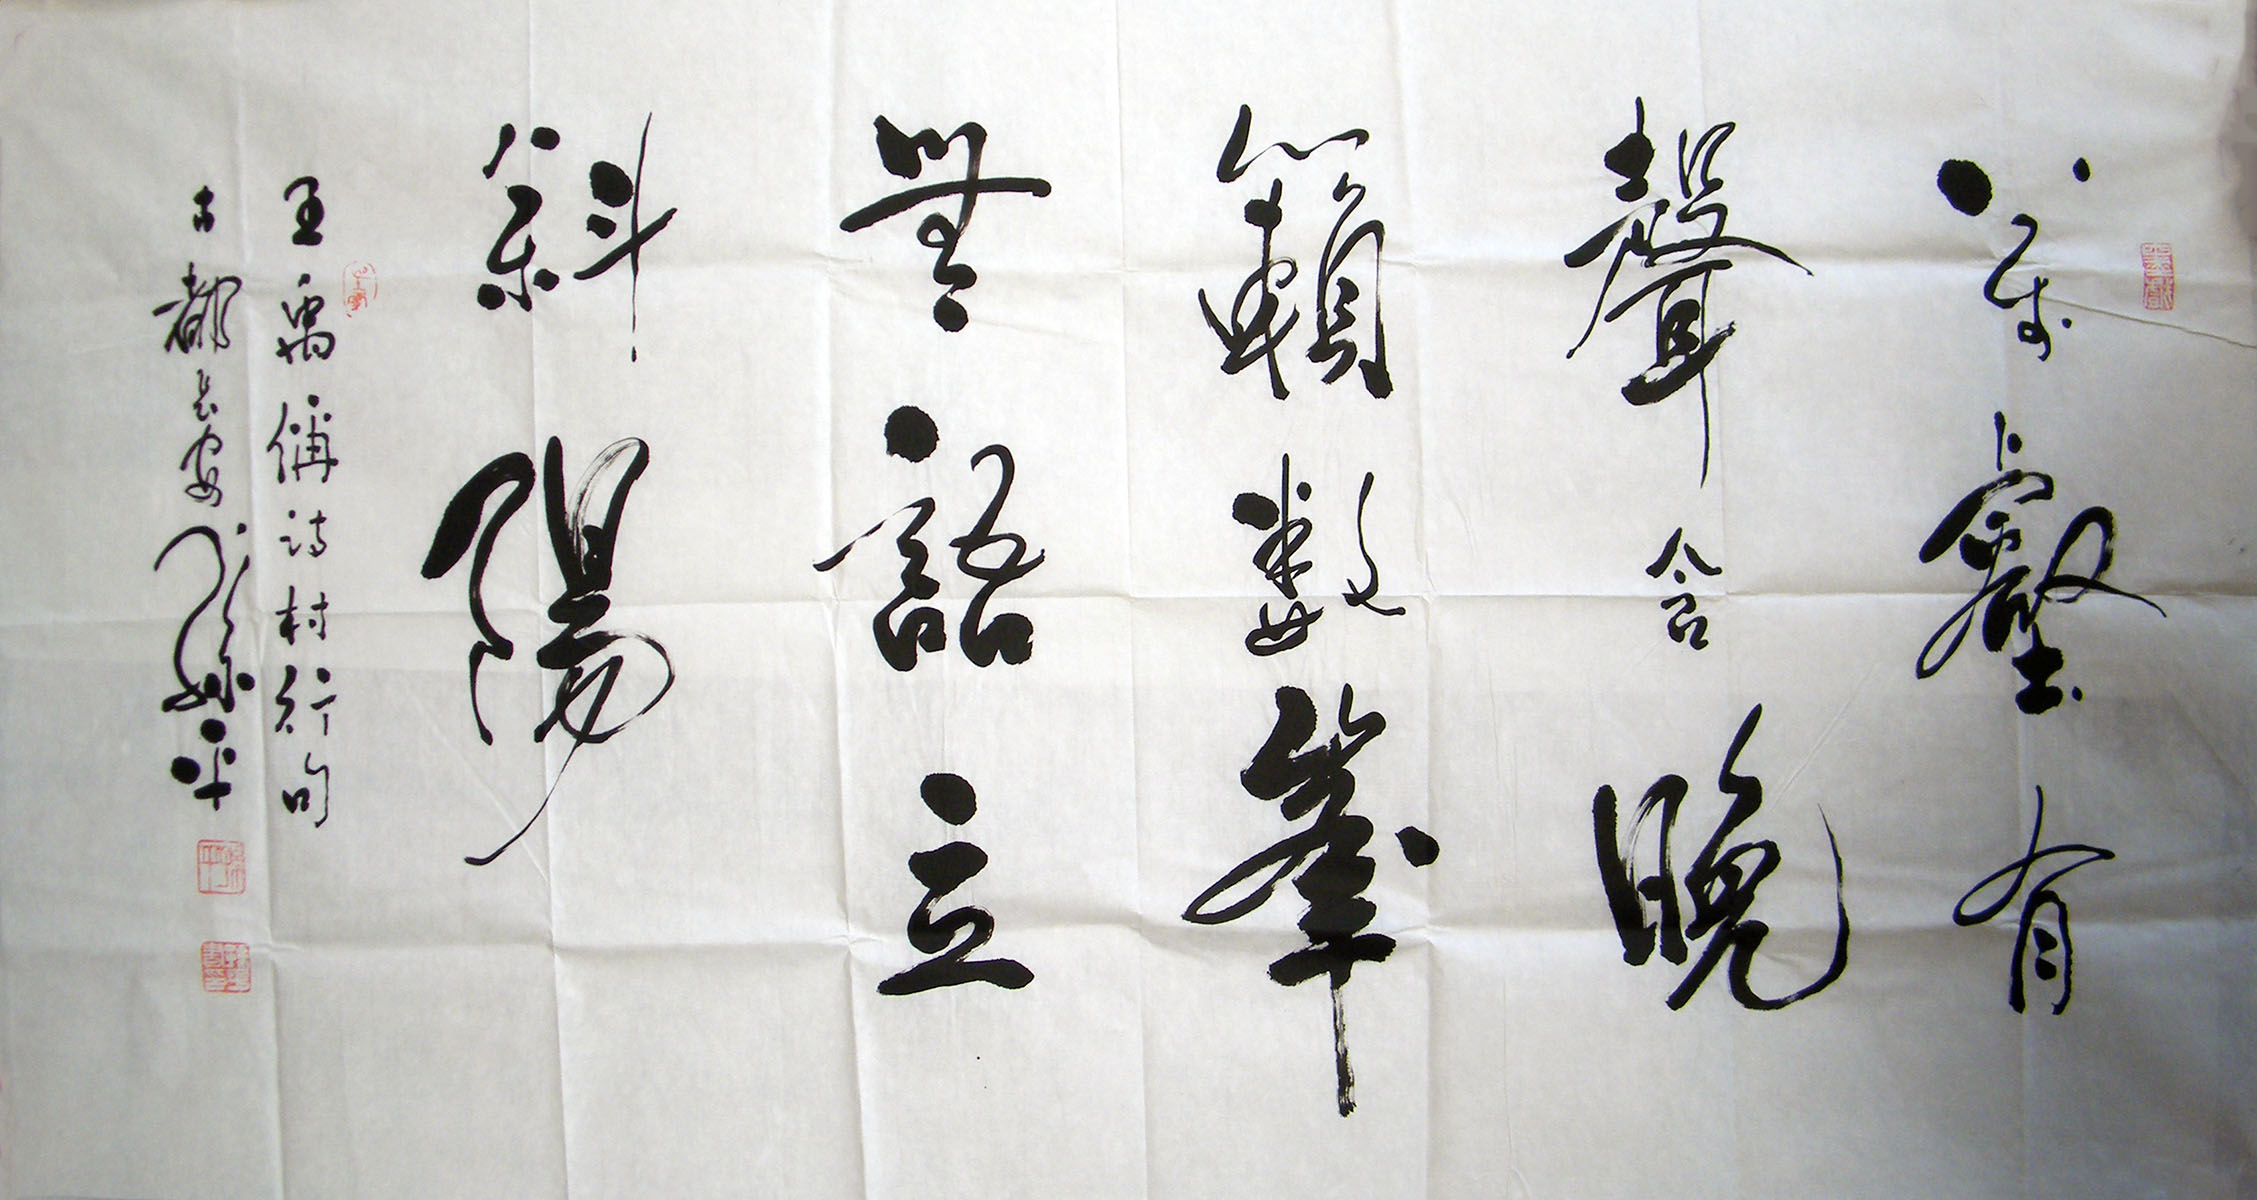 萬壑有
聲含晚
籟數峯
無語立
斜陽
王禹偁詩村行句
古都長安孫平